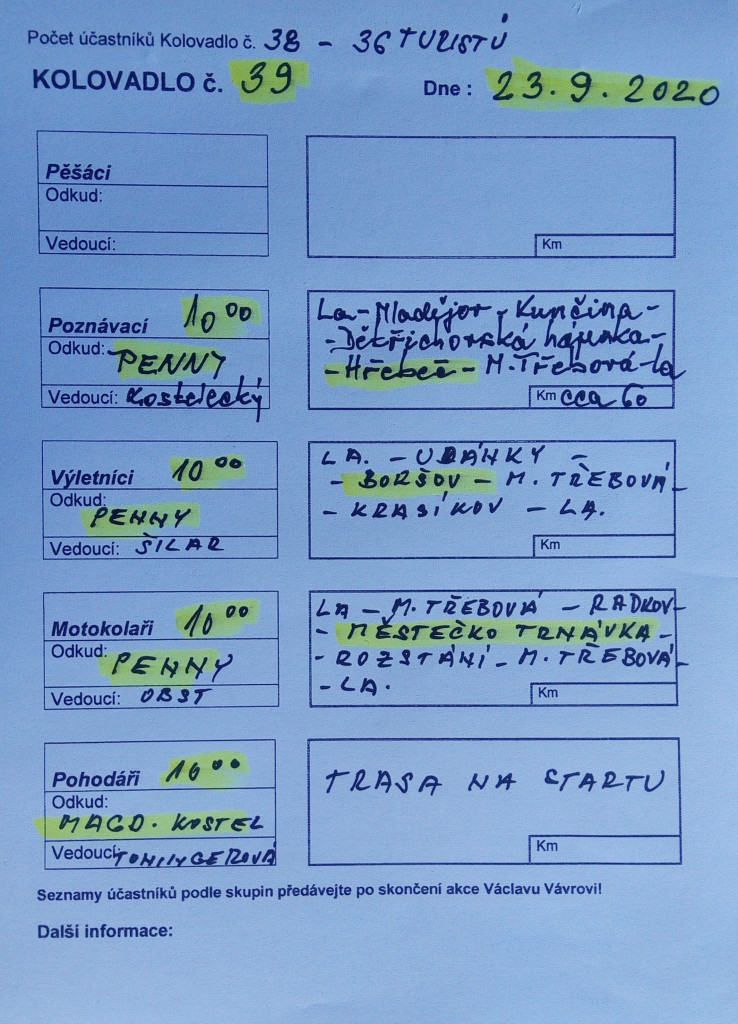 Počet účastníků Kolovadlo č. 38 - 36 TURISTŮ
KOLOVADLO č. 39 Dne : 23.9.2020
Pěšáci
Odkud:
Vedoucí:
Km
Poznávací 10 00
Odkud: PENNY
Vedoucí: Kostelecký
La - Mladějov - Kunčina -
- Dětřichovská hájenka -
- Hřebeč - M. Třebová - La
Km cca 60
Výletníci 10 00
Odkud:
PENNY
Vedoucí: ŠILAR
LA. - UDÁNKY -
- BORŠOV - M. TŘEBOVÁ -
- KRASÍKOV - LA.
Km
Motokolaři 10 00
Odkud: PENNY
Vedoucí: OBST
LA - M. TŘEBOVÁ - RADKOV -
- MĚSTEČKO TRNÁVKA -
- ROZSTÁNÍ - M. TŘEBOVÁ -
- LA.
Km
Pohodáři 10 00
Odkud:
MAGD. KOSTEL
Vedoucí:
TRASA NA STARTU
Km
Seznamy účastníků podle skupin předávejte po skončení akce Václavu Vávrovi!
Další informace: